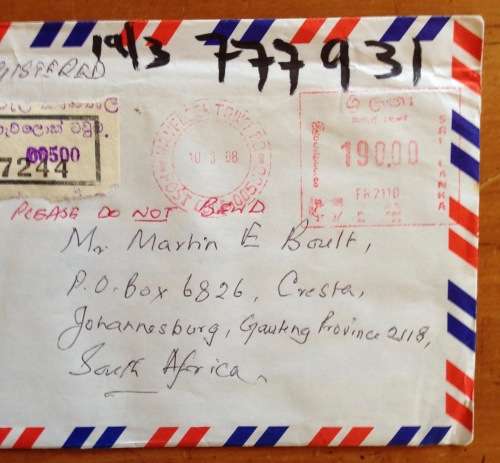 19/3 777931
GISTERED
ශ්‍රී ලංකා
SRI LANKA
190.00
FR2110
TOWN
POST
00500
10 3 98
00500
7244
PLEASE DO NOT BEND
Mr Martin E Boult,
P.O. Box 6826, Cresta,
Johannesburg, Gauteng Province 2118,
South Africa.